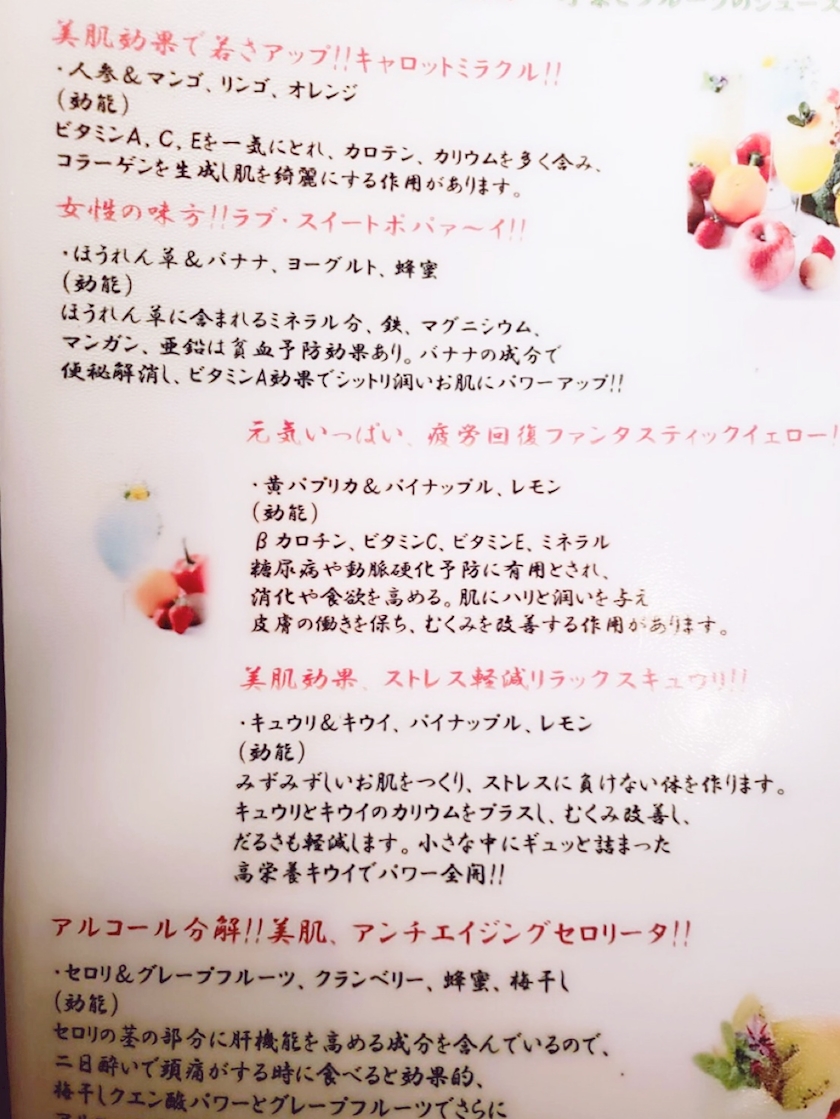 美肌効果で若さアップ!!キャロットミラクル!!
・人参&マンゴ、リンゴ、オレンジ
(効能)
ビタミンA, C, Eを一気にとれ、カロテン、カリウムを多く含み、
コラーゲンを生成し肌を綺麗にする作用があります。
女性の味方!!ラブ・スイートポパァ〜イ!!
・ほうれん草&バナナ、ヨーグルト、蜂蜜
(効能)
ほうれん草に含まれるミネラル分、鉄、マグニシウム、
マンガン、亜鉛は貧血予防効果あり。バナナの成分で
便秘解消し、ビタミンA効果でシットリ潤いお肌にパワーアップ!!
元気いっぱい、疲労回復ファンタスティックイェロー!
・黄パプリカ&パイナップル、レモン
(効能)
βカロチン、ビタミンC、ビタミンE、ミネラル
糖尿病や動脈硬化予防に有用とされ、
消化や食欲を高める。肌にハリと潤いを与え
皮膚の働きを保ち、むくみを改善する作用があります。
美肌効果、ストレス軽減リラックスキュウリ!!
・キュウリ&キウイ、パイナップル、レモン
(効能)
みずみずしいお肌をつくり、ストレスに負けない体を作ります。
キュウリとキウイのカリウムをプラスし、むくみ改善し、
だるさも軽減します。小さな中にギュッと詰まった
高栄養キウイでパワー全開!!
アルコール分解!!美肌、アンチエイジングセロリータ!!
・セロリ&グレープフルーツ、クランベリー、蜂蜜、梅干し
(効能)
セロリの茎の部分に肝機能を高める成分を含んでいるので、
二日酔いで頭痛がする時に食べると効果的、
梅干しクエン酸パワーとグレープフルーツでさらに